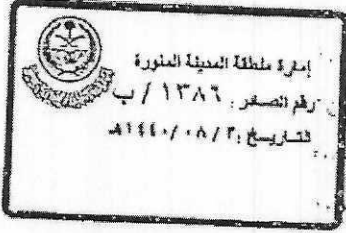 إمارة منطقة المدينة المنورة
رقم الصادر : ١٣٨٦ / ب
التاريخ : ٣ / ٠٨ / ١٤٤٠هـ